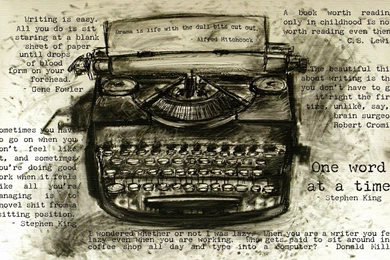 Writing is easy.
All you do is sit
staring at a blank
sheet of paper
until drops
of blood
form on your
forehead.
Gene Fowler
Drama is life with the dull bits cut out.
Alfred Hitchcock
A book worth reading
only in childhood is no
worth reading even then
C.S. Lewi
The beautiful thi
about writing is t
you don't have to g
it right the fir
time, unlike, say,
brain surgeo
Robert Cromi
ometimes you have
o go on when you
on't feel like
t, and sometimes
ou're doing good
ork when it feel
ike all you're
anaging is to
hovel shit from a
itting position.
- Stephen King
One word
at a time
Stephen King
I wondered whether or not I was lazy. When you are a writer you
lazy even when you are working. Who gets paid to sit around in
coffee shop all day and type into a computer? - Donald Mill